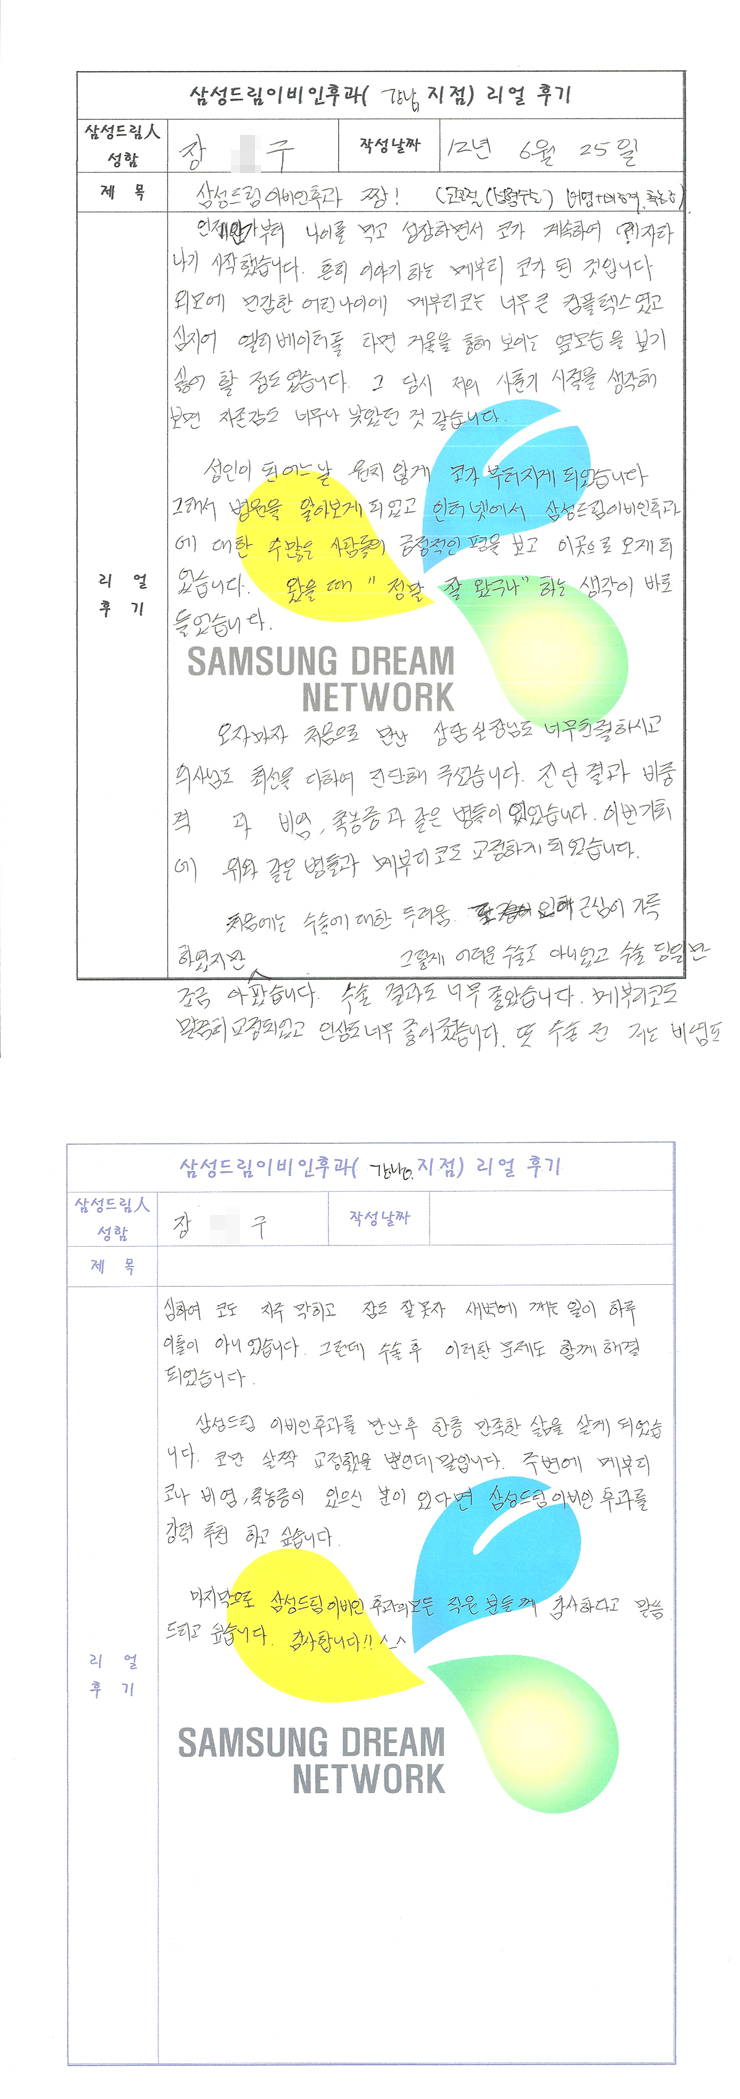 삼성드림이비인후과( 강남 지점) 리얼 후기
삼성드림人 성함
장 구
작성날짜
12년 6월 25일
제 목
삼성드림이비인후과 짱!
언제인가부터 나이를 먹고 성장하면서 코가 계속하여 자라
나기 시작했습니다. 흔히 이야기 하는 메부리 코가 된 것입니다
외모에 민감한 어린나이에 메부리코는 너무 큰 컴플렉스였고
심지어 엘리베이터를 타면 거울을 통해 보이는 옆모습을 보기
싫어 할 정도였습니다. 그 당시 저의 사춘기 시절을 생각해
보면 자존감도 너무나 낮았던 것 같습니다.
성인이 된 어느날 원치 않게 코가 부러지게 되었습니다
그래서 병원을 알아보게 되었고 인터넷에서 삼성드림이비인후과
에 대한 수많은 사람들의 긍정적인 평을 보고 이곳으로 오게 되
었습니다. 왔을 때 " 정말 잘 왔구나" 하는 생각이 바로
들었습니다.
리 얼
후 기
SAMSUNG DREAM
NETWORK
오자마자 처음으로 만난 상담실장님도 너무 친절하시고
의사님도 최선을 다하여 진단해 주셨습니다. 진단 결과 비중
격 과 비염, 축농증과 같은 병들이 있었습니다. 이번기회
에 위와 같은 병들과 메부리코도 교정하게 되었습니다.
처음에는 수술에 대한 두려움 근심이 가득
하였지만 그렇게 어려운 수술도 아니었고 수술 당일만
조금 아팠습니다. 수술 결과도 너무 좋았습니다. 메부리코도
말끔히 교정되었고 인상도 너무 좋아졌습니다. 또 수술 전 저는 비염도
삼성드림이비인후과( 강남 지점) 리얼 후기
삼성드림人 성함
장 구
작성날짜
제 목
심하여 코도 자주 막히고 잠도 잘 못자 새벽에 깨는 일이 하루
이틀이 아니었습니다. 그런데 수술 후 이러한 문제도 함께 해결
되었습니다.
삼성드림 이비인후과를 만난후 한층 만족한 삶을 살게 되었습
니다. 코만 살짝 교정했을 뿐인데 말입니다. 주변에 메부리
코나 비염, 축농증이 있으신 분이 있다면 삼성드림이비인후과를
강력 추천 하고 싶습니다.
마지막으로 삼성드림이비인후과의 모든 직원분들께 감사하다고 말씀
드리고 싶습니다. 감사합니다!! ^_^
리 얼
후 기
SAMSUNG DREAM
NETWORK